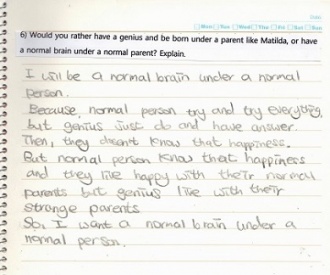 6) Would you rather have a genius and be born under a parent like Matilda, or have
a normal brain under a normal parent? Explain.
I will be a normal brain under a normal
person.
Because, normal person try and try everything,
but genius just do and have answer.
Then, they doesn't know that happiness.
But normal person know that happiness
and they like happy with their normal
parents but genius live with their
strange parents
So, I want a normal brain under a
normal person.